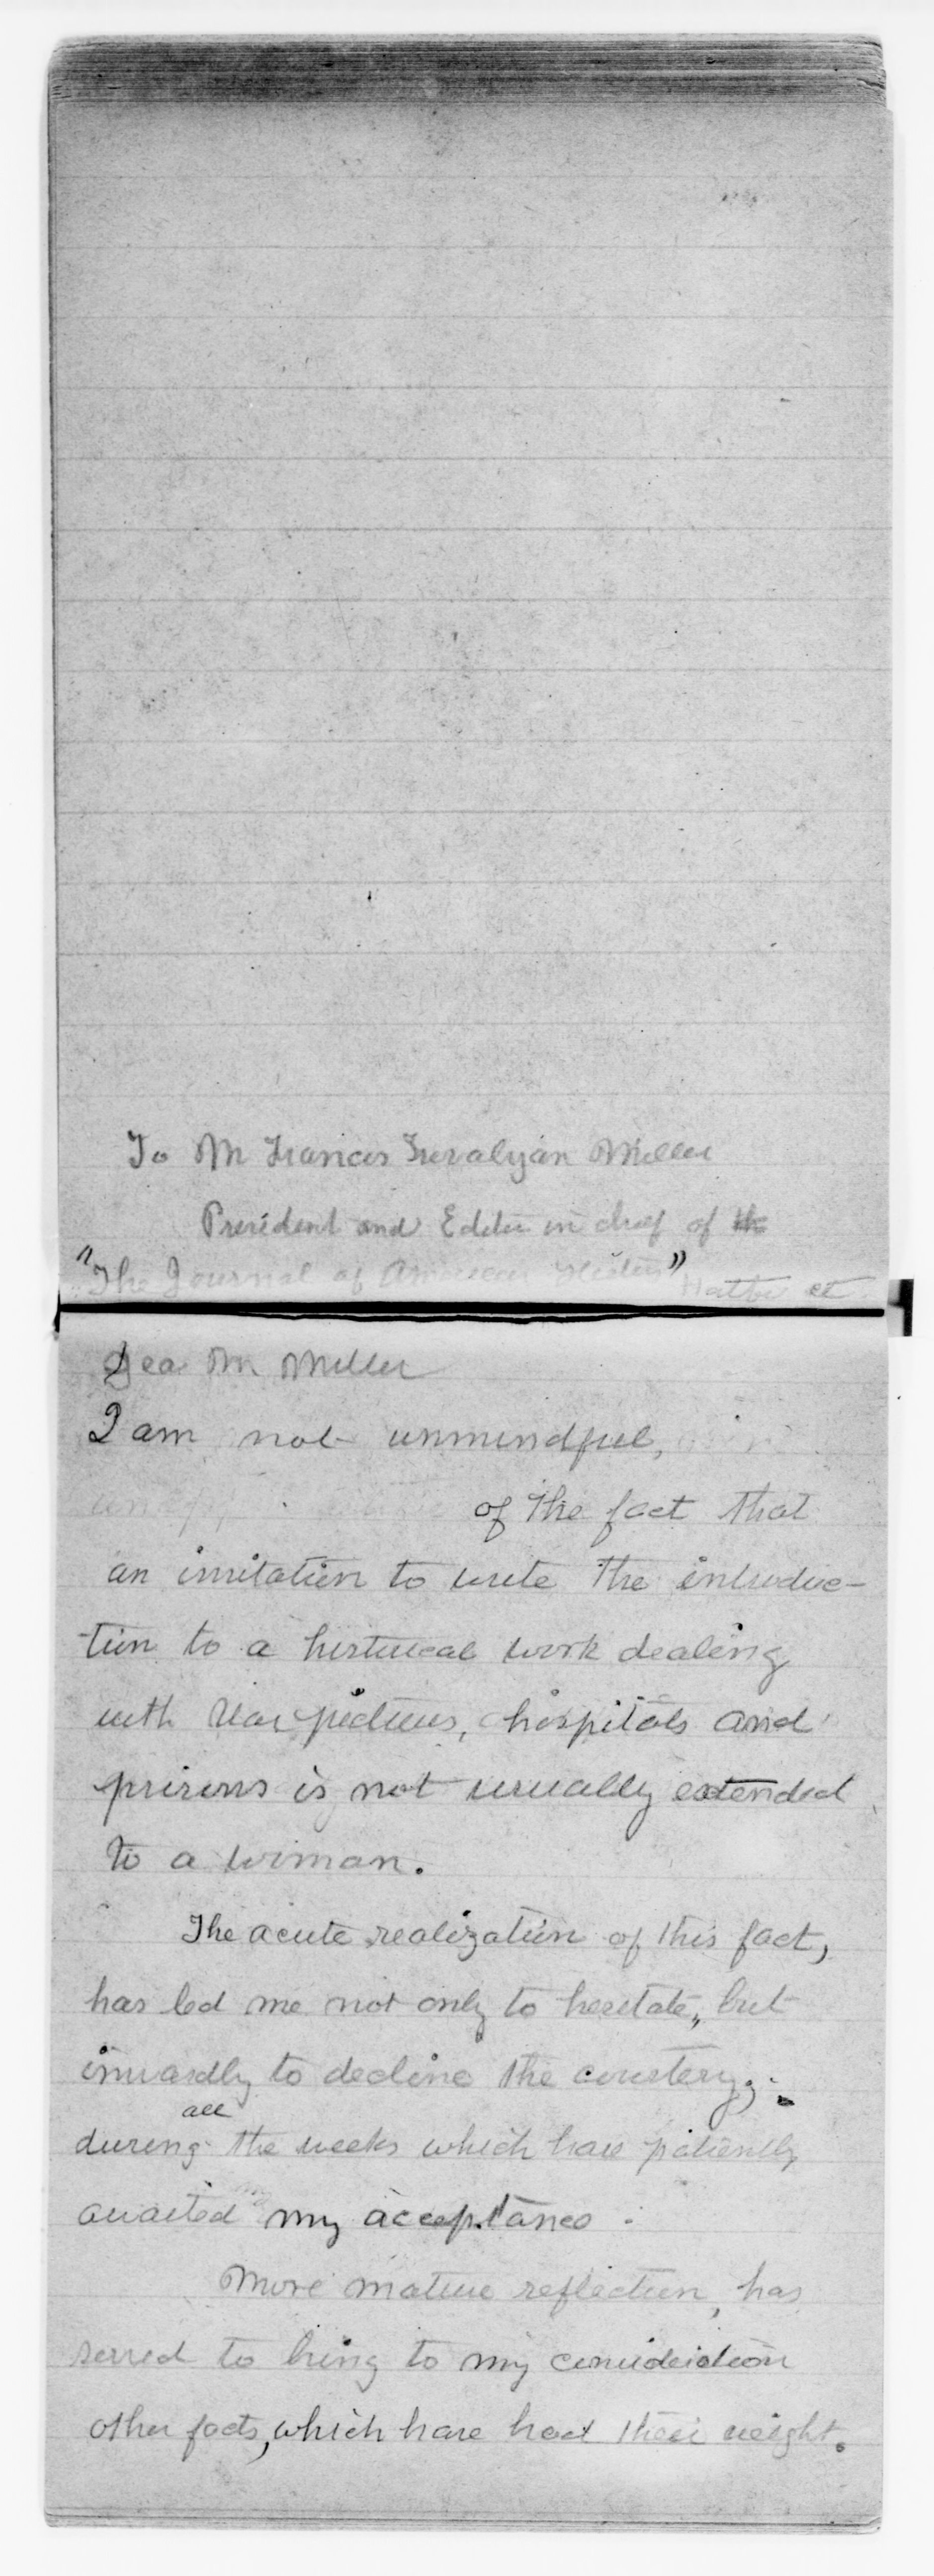 To Mr Francis Trevalyan Miller
President and Editor in chief of the
"The Journal of American History"
Dear Mr Miller
I am not unmindful,
of the fact that
an invitation to write the introduc-
tion to a historical work dealing
with War pictures, hospitals and
prisons is not usually extended
to a woman.
The acute realization of this fact,
has led me not only to hesitate, but
inwardly to decline the courtesy;
all
during the weeks which have patiently
awaited my acceptance.
More mature reflection, has
served to bring to my consideration
other facts, which have had their weight.